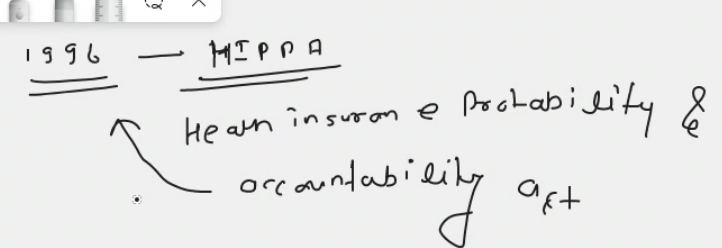 1996 — HIPAA
Health insurance Portability &
accountability act